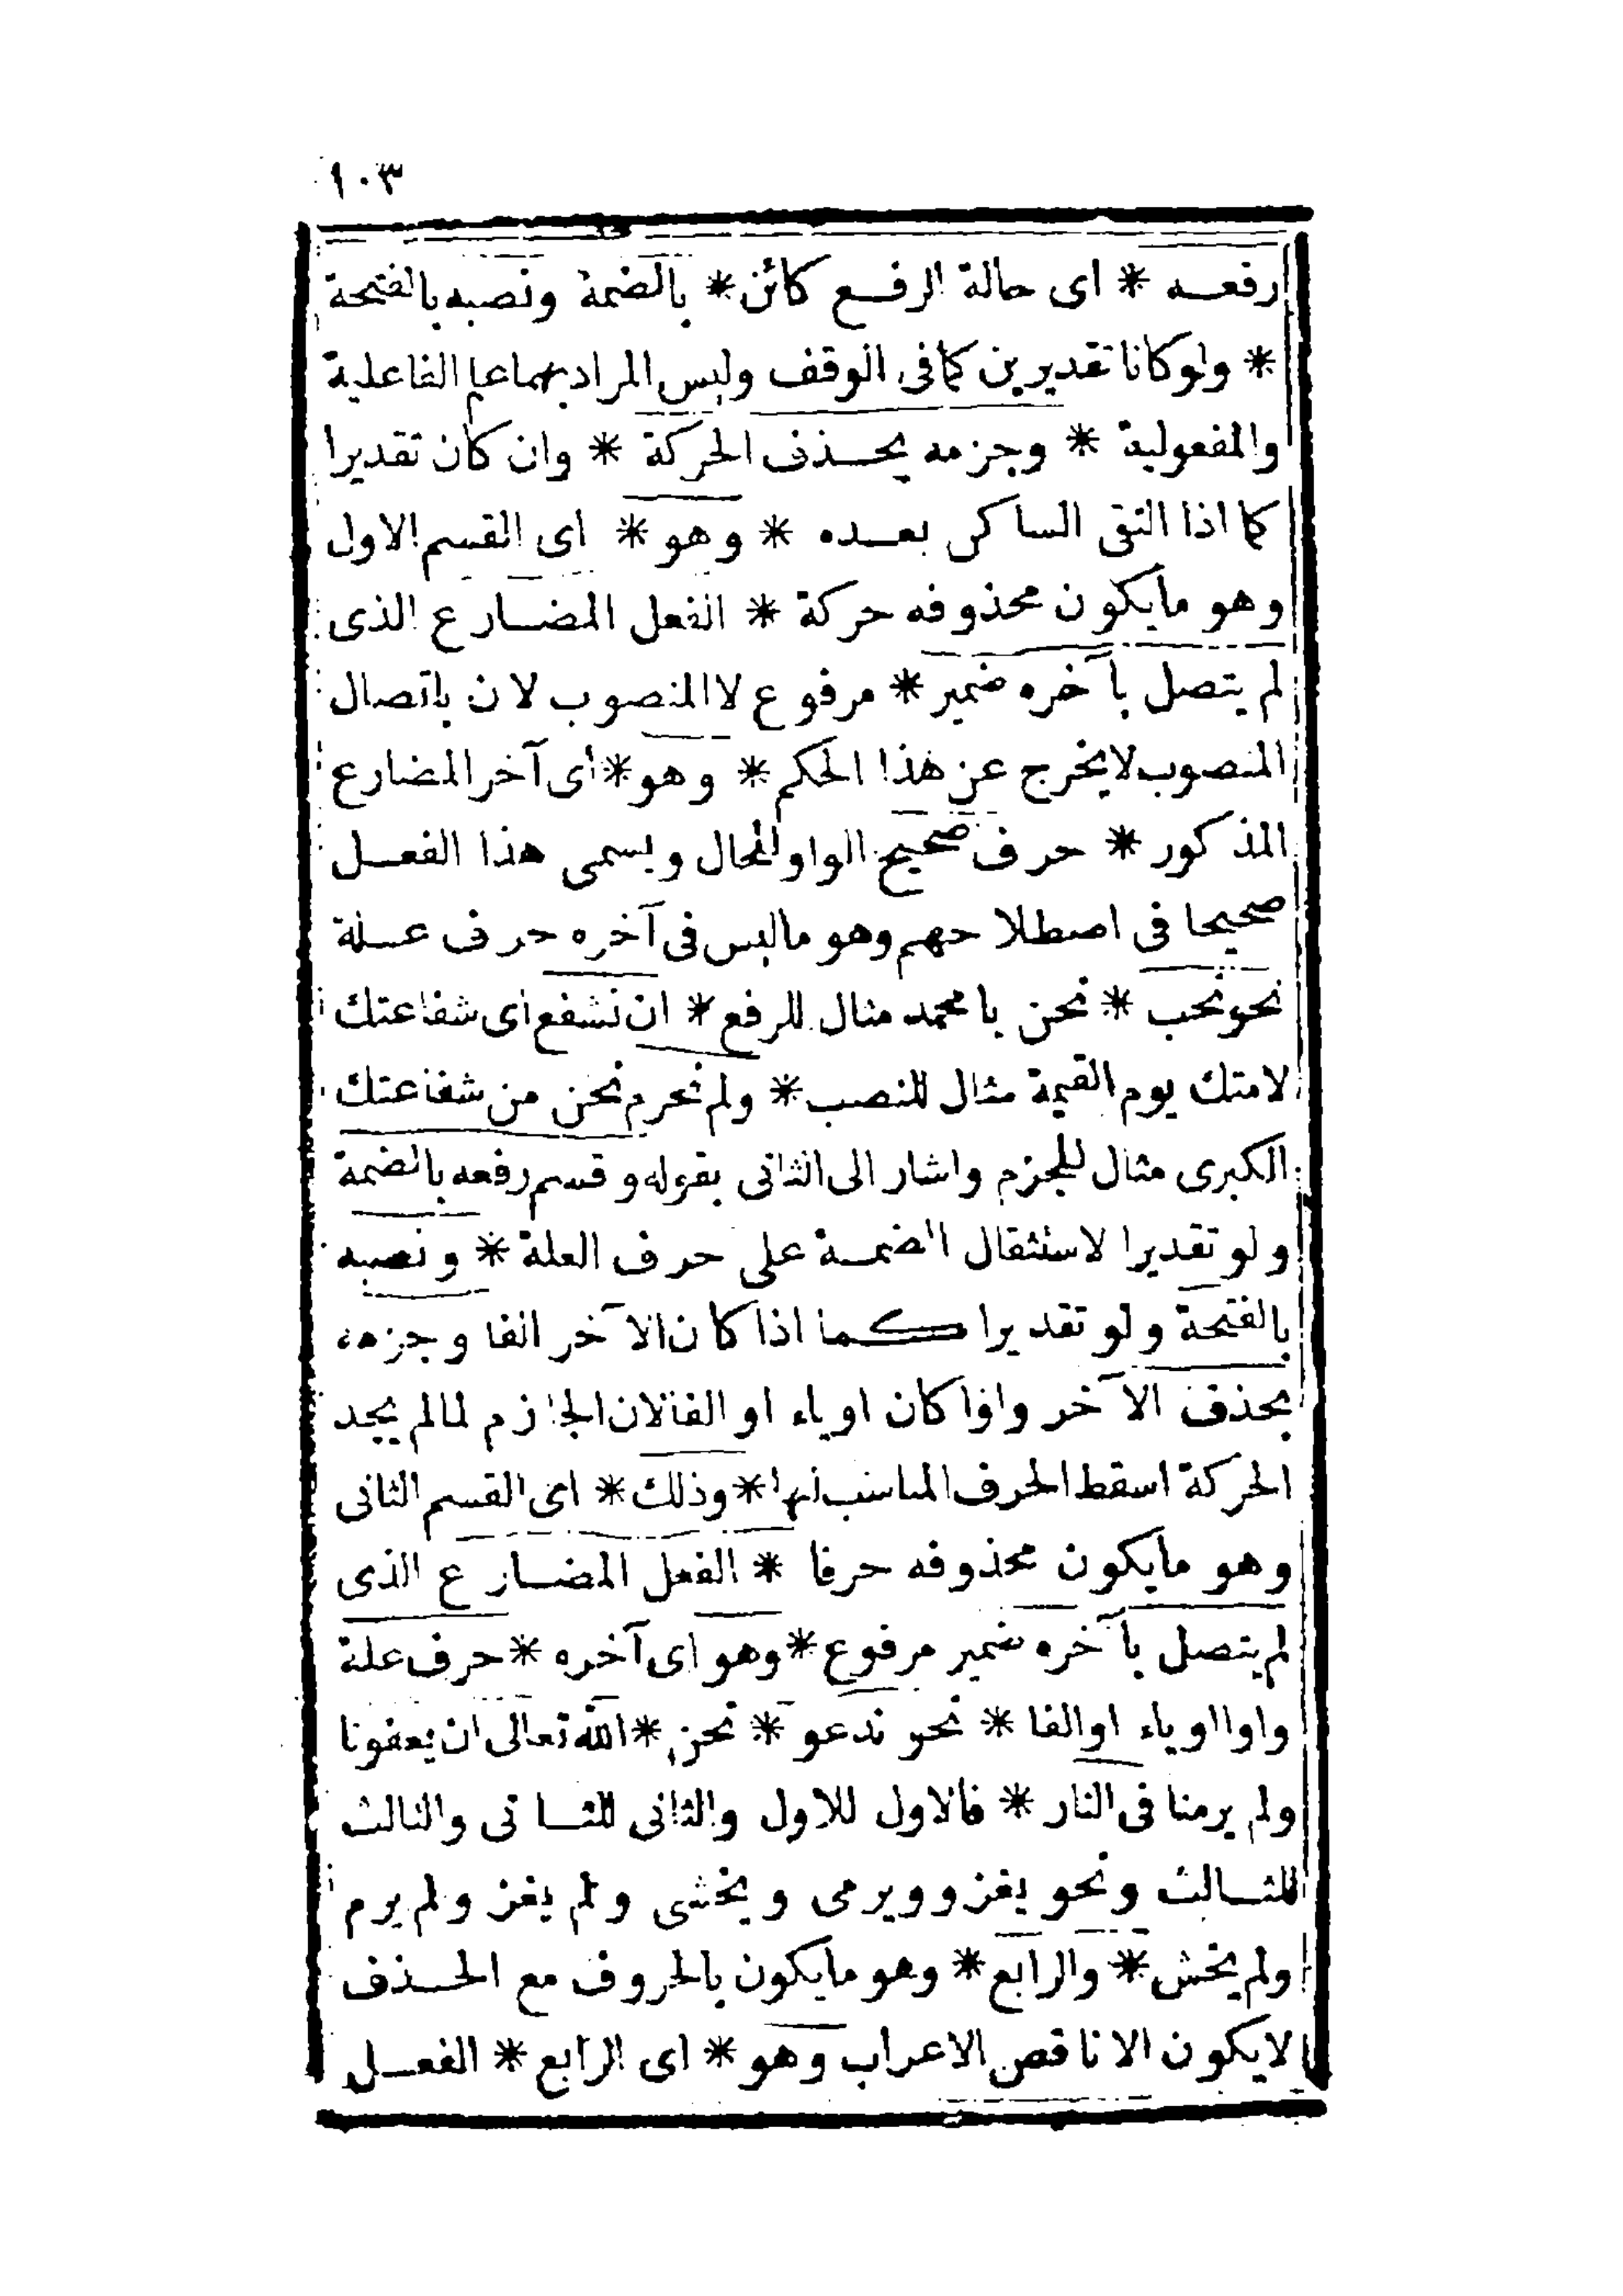 ١٠٣
رفعـه * اى حالة الرفـع كائن * بالضمة ونصبه بالفتحة
* ولوكانا تقديرين كمافى الوقف وليس المراد بهما الفاعلية
والمفعولية * وجزمه بحـذف الحركة * وان كان تقديرا
كما اذا التقى الساكن بعـده * وهو * اى القسم الاول
وهو مايكون محذوفه حركة * الفعل المضـارع الذى
لم يتصل بآخره ضمير * مرفوع لا المنصوب لان باتصال
المنصوب لايخرج عن هذا الحكم * وهو * اى آخر المضارع
المذكور * حرف صحيح الواو للحال ويسمى هذا الفعـل
صحيحا فى اصطلاحهم وهو ماليس فى آخره حرف عـلة
نحو نحب * نحن يا محمد مثال للرفع * ان نشفع اى شفاعتك
لامتك يوم القيمة مثال للنصب * ولم نحرم نحن من شفاعتك
الكبرى مثال للجزم واشار الى الثانى بقوله وقسم رفعه بالضمة
ولو تقديرا لاستثقال الضمـة على حرف العلة * ونصبه
بالفتحة ولو تقديرا كـما اذا كان الآخر الفا وجزمه
بحذف الآخر واوا كان اوياء او الفا لان الجازم لما لم يجد
الحركة اسقط الحرف المناسب لها * وذلك * اى القسم الثانى
وهو مايكون محذوفه حرفا * الفعل المضـارع الذى
لم يتصل بآخره ضمير مرفوع * وهو اى آخره * حرف علة
واوا اوياء اوالفا * نحو ندعو * نحن * الله تعالى ان يعفونا
ولم يرمنا فى النار * فالاول للاول والثانى للثـانى والثالث
للثـالث ونحو يغزو ويرمى ويخشى ولم يغز ولم يرم
ولم يخش * والرابع * وهو مايكون بالحروف مع الحـذف
لايكون الا ناقص الاعراب وهو * اى الرابع * الفعـل